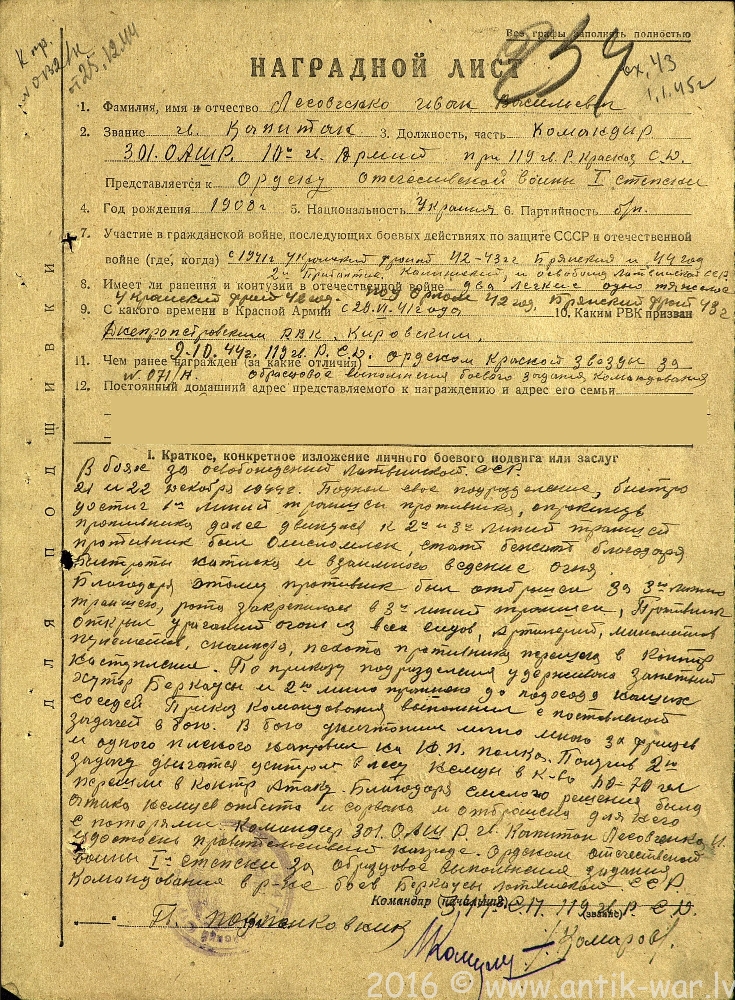 Все графы заполнять полностью
К пр.
№ 0132/н
от 25.12.44
234
вх. 43
1.1.45г
НАГРАДНОЙ ЛИСТ
1. Фамилия, имя и отчество Лесовченко Иван Васильевич
2. Звание гв. Капитан 3. Должность, часть Командир
301. ОАШР. 10й гв. Армии при 119 гв. Р. Красноз С.Д.
Представляется к Ордену Отечественной войны I степени
4. Год рождения 1908г 5. Национальность Украинец 6. Партийность б/п.
7. Участие в гражданской войне, последующих боевых действиях по защите СССР и отечественной
войне (где, когда) с 1941г Украинский фронт 42-43г Брянский и 44 год
2й Прибалтий. Калининский, и освобожд Латвийской ССР.
8. Имеет ли ранения и контузии в отечественной войне два легкие одно тяжелое
Украинский фронт год. под Орлом 42 год. Брянский фронт 43г
9. С какого времени в Красной Армии с 28.VI.41 года 10. Каким РВК призван
Днепропетровским РВК. Кировским.
11. Чем ранее награжден (за какие отличия) орденом Красной Звезды за
9.10.44г. 119 гв. Р.С.Д.
№ 071/н. образцовое выполнения боевого задания командования
12. Постоянный домашний адрес представляемого к награждению и адрес его семьи
I. Краткое, конкретное изложение личного боевого подвига или заслуг
В боях за освобождений Латвийской ССР.
21 и 22 декабря 1944г. Поднял свое подразделение, быстро
достиг 1й линий траншеи противника, опрокинув
противника далее двинулся к 2й и 3й линий траншей
противник был ошеломлен, стал бежать благодаря
быстроты натиска и взаимного ведение огня.
Благодаря этому противник был отброшен за 3ю линию
траншею, рота закрепилась в 3й линий траншеи, Противник
открыл ураганый огонь из всех видов, Артилерий, минометов
пулеметов, снайпера, пехота противника перешла в контр
наступление. По приказу подразделения удерживала занятый
хутор Беркаусы и 2ю линию траншею до подхода наших
соседей Приказ командования выполнил с поставленой
задачей в бою. В бою уничтожил лично много 3х фрицев
и одного пленого направил на КП. полка. Получив 2ю
задачу двигатся центром в лесу немцы в к-во 60-70 чел
перешли в контр Атаку. Благодаря смелого решения была
атака немцев отбита и сорвана и отброшена для него
с потерями. Командир 301. ОАШР. гв. Капитан Лесовченко И.
удостоен правительственой награде. Орденом отечественной
войны Iй степени за образцовое выполнения задания
Командования в р-не боев Беркаусы латвийской ССР.
Командир (начальник)
гв. С.П. 119 гв. Р.С.Д.
(звание)
П.
Комаров
ДЛЯ ПОДШИВКИ
2016 © www.antik-war.lv